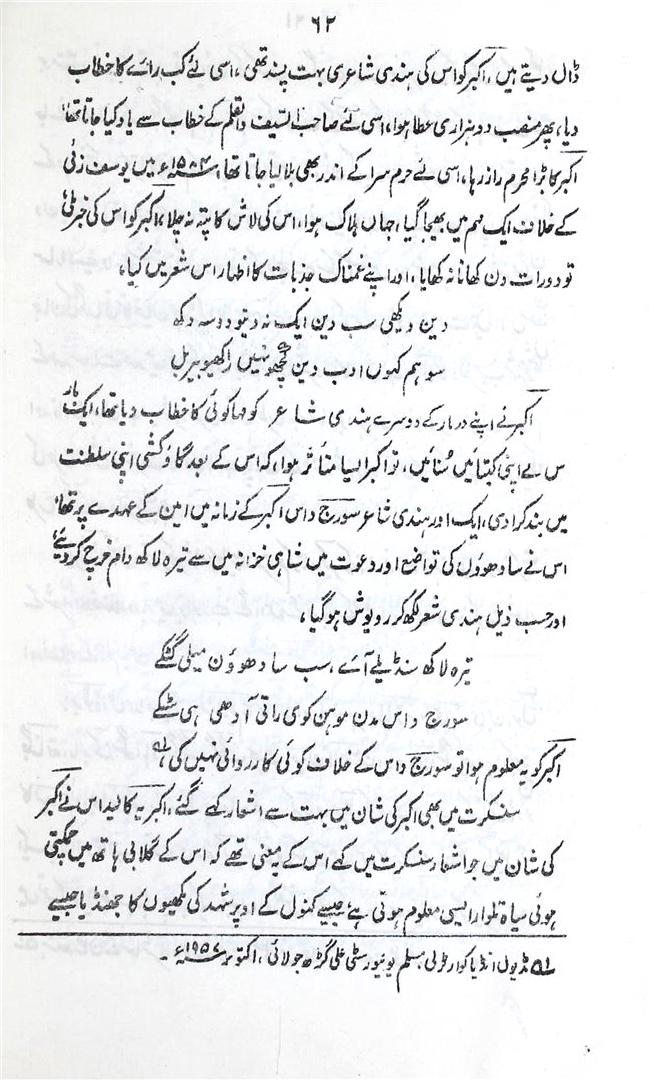 ۶۲
ڈال دیتے ہیں، اکبر کو اس کی ہندی شاعری بہت پسند تھی، اسی لئے کب رائے کا خطاب
دیا، پھر منصب دو ہزاری عطا ہوا، اسی لئے صاحب السیف والقلم کے خطاب سے یاد کیا جاتا تھا،
اکبر کا بڑا محرم راز رہا، اسی لئے حرم سرا کے اندر بھی بلا لیا جاتا تھا، ۱۵۸۳ء میں یوسف زئی
کے خلاف ایک مہم میں بھیجا گیا، جہاں ہلاک ہوا، اس کی لاش کا پتہ نہ چلا، اکبر کو اس کی خبر ملی،
تو دو رات دن کھانا نہ کھایا، اور اپنے غمناک جذبات کا اظہار اس شعر میں کیا،
دین دیکھی سب دین ایک نہ دنو دوسہ دکھ
سو ہم کہوں ادب دین کچھو نہیں راکھیو بیربل
اکبر نے اپنے دربار کے دوسرے ہندی شاعر کو مہا کوئی کا خطاب دیا تھا، ایک بار
س نے اپنی کبتائیں سنائیں، تو اکبر ایسا متاثر ہوا، کہ اس کے بعد گاؤ کشی اپنی سلطنت
میں بند کرا دی، ایک اور ہندی شاعر سورج داس اکبر کے زمانہ میں امین کے عہدے پر تھا،
اس نے سادھوؤں کی تواضع اور دعوت میں شاہی خزانہ میں سے تیرہ لاکھ دام خرچ کر دیئے،
اور حسب ذیل ہندی شعر لکھ کر روپوش ہو گیا،
تیرہ لاکھ سنڈیلے آے، سب سادھوؤن میلی گٹکے
سورج داس مدن موہن کوی راتی آدھی ہی سٹکے
اکبر کو یہ معلوم ہوا تو سورج داس کے خلاف کوئی کارروائی نہیں کی، ۱ھ
سنسکرت میں بھی اکبر کی شان میں بہت سے اشعار کہے گئے، اکبریہ کالیداس نے اکبر
کی شان میں جو اشعار سنسکرت میں کہے اس کے یہ معنی تھے کہ اس کے گلابی ہاتھ میں چمکتی
ہوئی سیاہ تلوار ایسی معلوم ہوتی ہے جیسے کنول کے اوپر شہد کی مکھیوں کا جھنڈ یا جیسے
۱ھ مڈیول انڈیا کوارٹرلی مسلم یونیورسٹی علی گڑھ جولائی، اکتوبر ۱۹۵۷ء۔